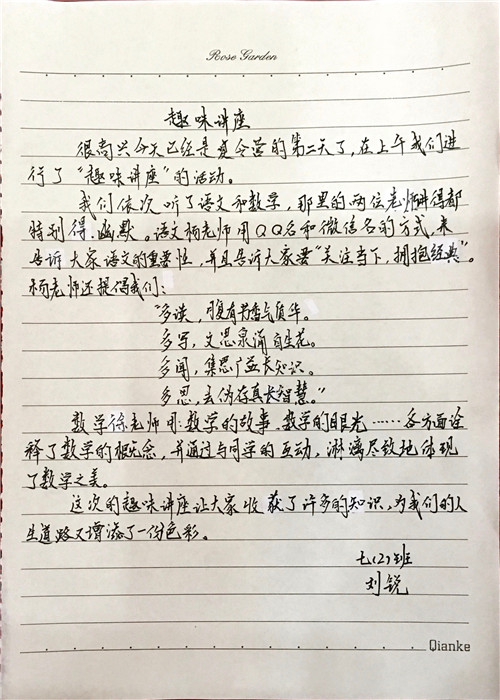 Rose Garden
趣味讲座
很高兴今天已经是夏令营的第二天了,在上午我们进
行了“趣味讲座”的活动。
我们依次听了语文和数学,那里的两位老师讲得都
特别得幽默。语文杨老师用QQ名和微信名的方式,来
告诉大家语文的重要性,并且告诉大家要“关注当下,拥抱经典”。
杨老师还提倡我们:
“多读,腹有书香气自华。
多写,文思泉涌自生花。
多闻,集思广益长知识。
多思,去伪存真长智慧。”
数学徐老师用:数学的故事、数学的眼光……各方面诠
释了数学的概念,并通过与同学的互动,淋漓尽致地体现
了数学之美。
这次的趣味讲座让大家收获了许多的知识,为我们的人
生道路又增添了一份色彩。
七(2)班
刘锐
Qianke